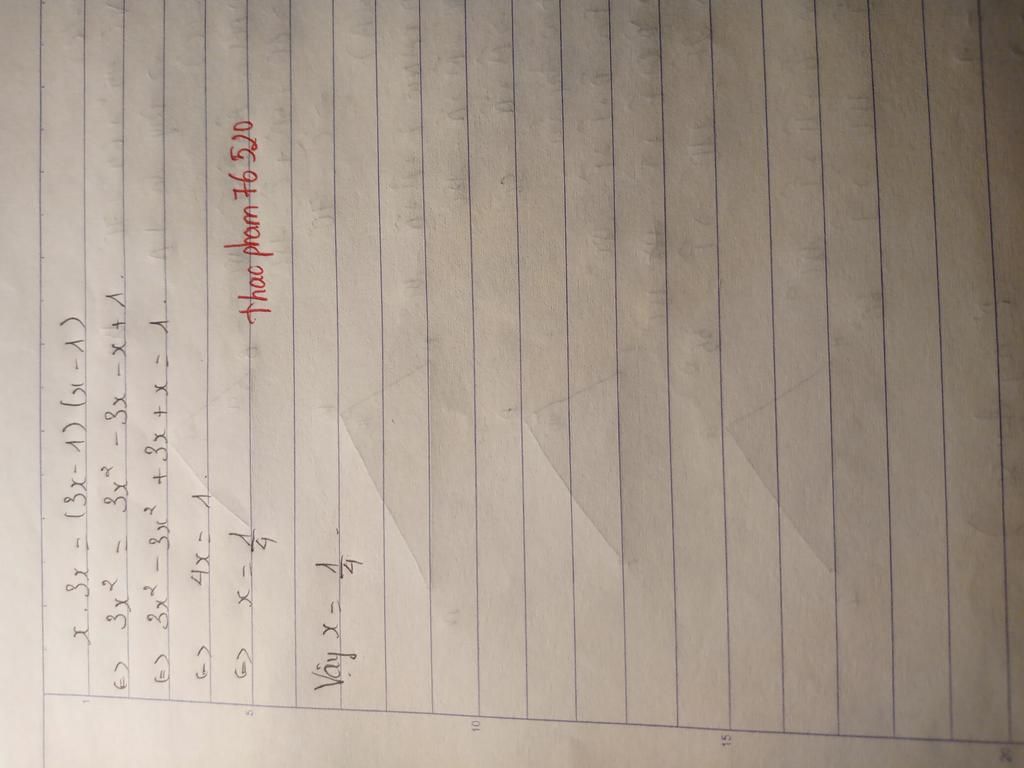 x. 3x = (3x - 1) (x - 1)
(=) 3x² = 3x² - 3x - x + 1.
(=) 3x² - 3x² + 3x + x = 1.
(=) 4x = 1
(=) x = 1/4
thao pham 76 520
Vậy x = 1/4.
1
5
10
15
20